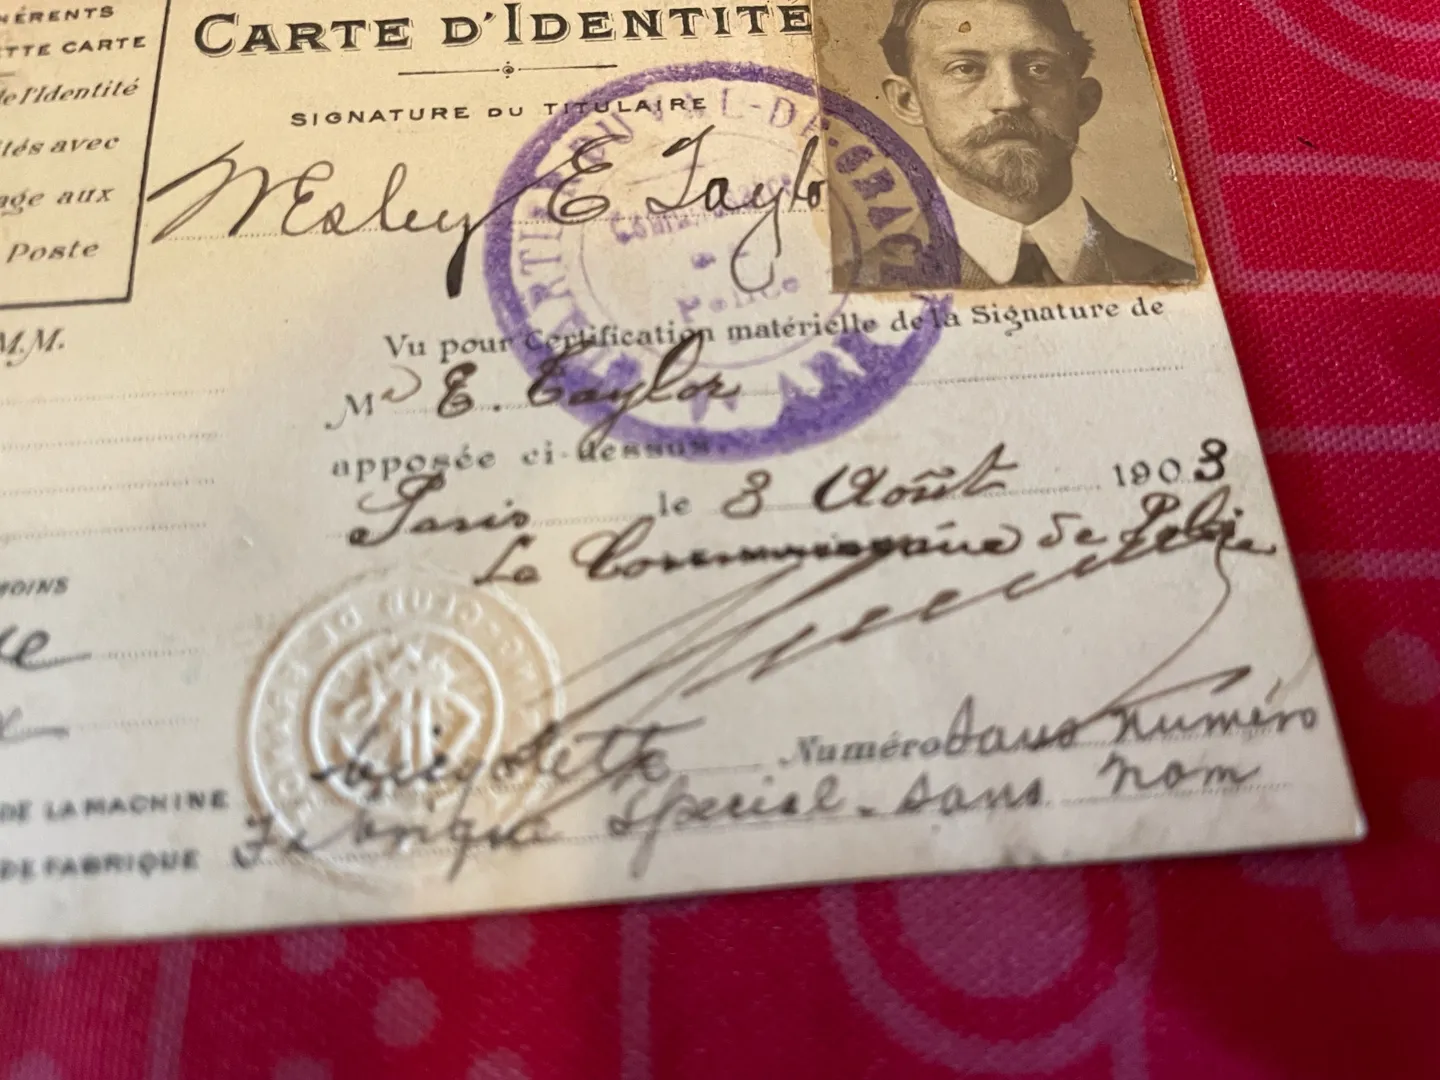 HÉRENTS
TTE CARTE
de l'Identité
ités avec
age aux
Poste
M.M.
CARTE D'IDENTITÉ
SIGNATURE DU TITULAIRE
Wesley E Taylo
QUARTIER DU VAL-DE-GRACE
Police
Vu pour Certification matérielle de la Signature de
M E. Taylor
apposée ci-dessus.
Paris le 3 Août 1903
Le Commissaire de Police
MOINS
DE LA MACHINE bicyclette Numéro sans numéro
DE FABRIQUE Fabrique special - sans nom